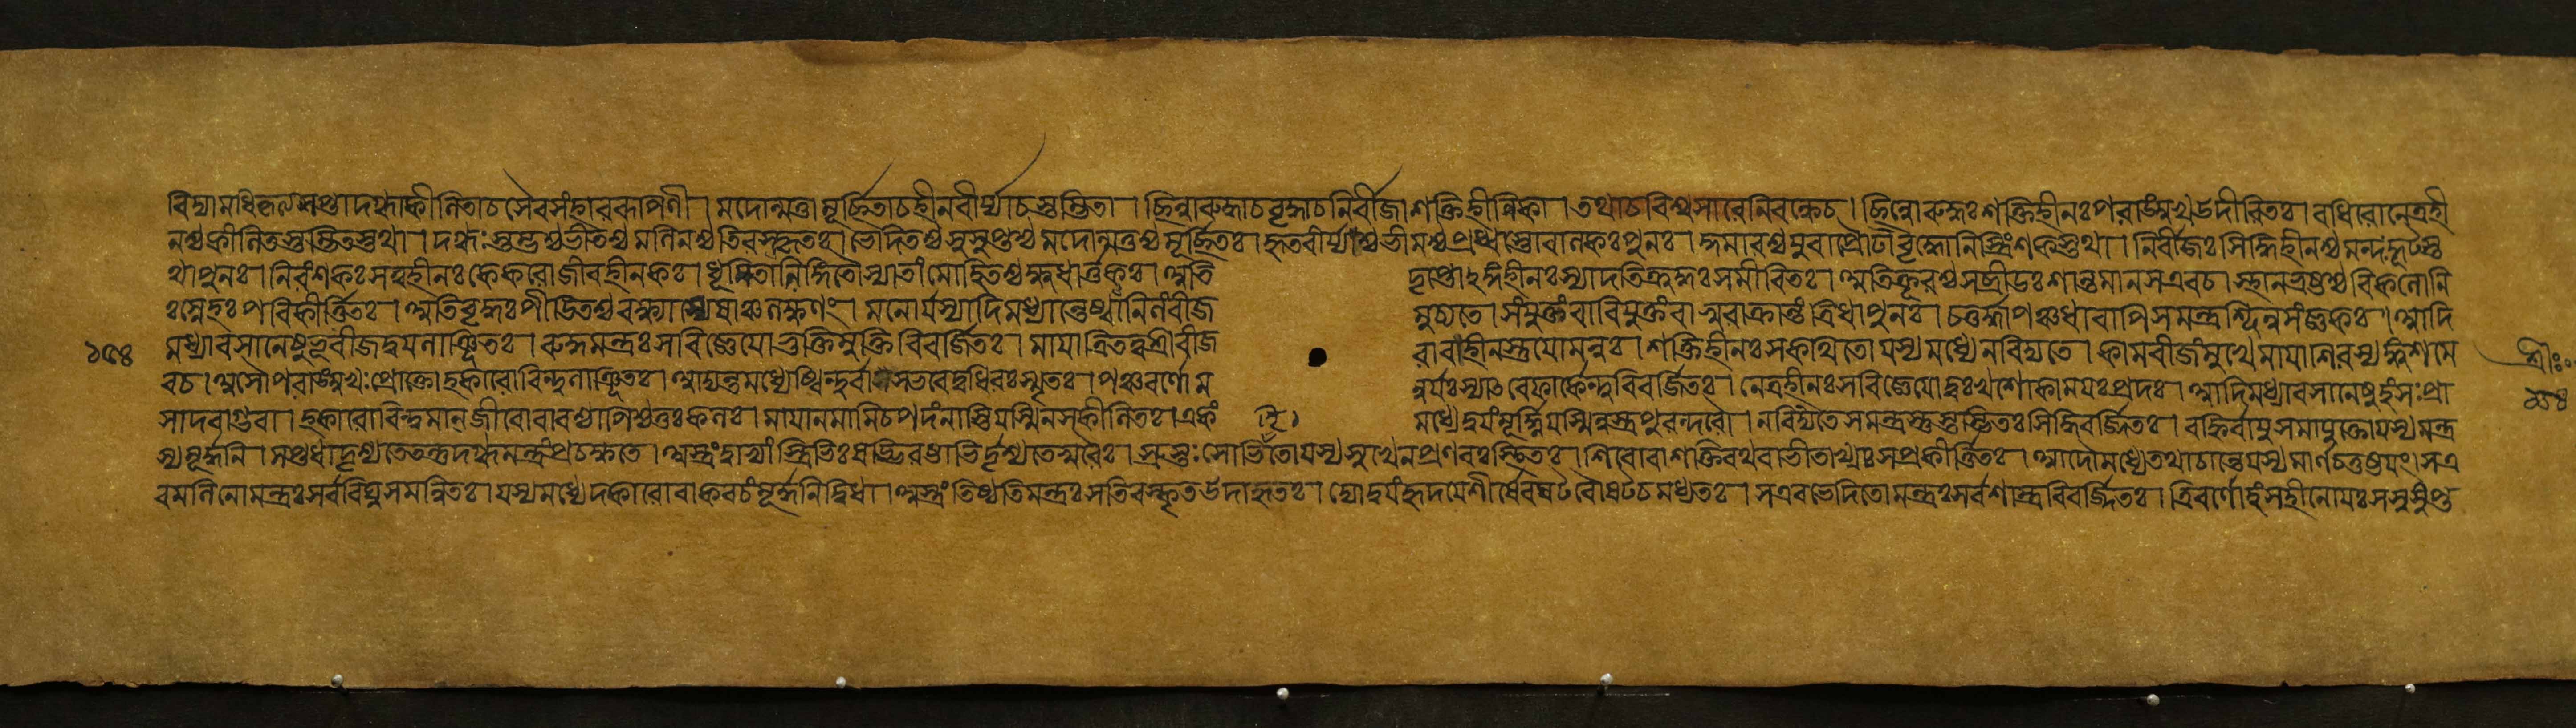 বিদ্যামধিকৃত্য দগ্ধা কীলিতা চ সৈব সংহাররূপিণী । মদোন্মত্তা মূর্চ্ছিতা চ হীনবীর্য্যা চ স্তম্ভিতা । ছিন্না রুদ্ধা চ বৃদ্ধা চ নির্বীজা শক্তিহীনিকা । তথা চ বিশ্বসারে নিবন্ধে চ । ছিন্নো রুদ্ধঃ শক্তিহীনঃ পরাঙ্মুখ উদীরিতঃ । বধিরো নেত্রহী
নশ্চ কীলিত স্তম্ভিত স্তথা । দগ্ধঃ স্রস্তশ্চ ভীতশ্চ মলিনশ্চ তিরস্কৃতঃ । ভেদিতশ্চ সুষুপ্তশ্চ মদোন্মত্তশ্চ মূর্চ্ছিতঃ । হৃতবীর্য্যশ্চ ভীমশ্চ প্রধ্বস্তো বালকঃ পুনঃ । কুমারশ্চ যুবা প্রৌঢো বৃদ্ধো নিস্ত্রিংশকস্তথা । নির্বীজঃ সিদ্ধিহীনশ্চ মন্দঃ কূটস্ত
থা পুনঃ । নিরংশকঃ সত্ত্বহীনঃ কেকরো জীবহীনকঃ । ধূমিতালিঙ্গিতৌ স্যাতাং মোহিতশ্চ ক্ষুধার্ত্তকঃ । অতি দৃপ্তোঽঙ্গহীনঃ স্যাদতিক্রুদ্ধঃ সমীরিতঃ । অতিক্রূরশ্চ সব্রীডঃ শান্তমানস এব চ । স্থানভ্রষ্টশ্চ বিকলো নি
ঃস্নেহঃ পরিকীর্ত্তিতঃ । অতিবৃদ্ধঃ পীডিতশ্চ বক্ষ্যাম্যেষাঞ্চ লক্ষণং । মনোর্যস্যাদিমধ্যান্তেষ্বানিলং বীজ মুচ্যতে । সংযুক্তং বা বিযুক্তং বা স্বরাক্রান্তং ত্রিধা পুনঃ । চতুর্দ্ধা পঞ্চধা বাপি স মন্ত্রশ্ছিন্নসংজ্ঞকঃ । আদি
১৫৪ মধ্যাবসানেষু ভূবীজদ্বয়লাঞ্ছিতঃ । রুদ্ধমন্ত্রঃ স বিজ্ঞেয়ো ভুক্তিমুক্তি বিবর্জিতঃ । মায়াত্রিতত্বশ্রীবীজ রাবহীনস্তু যো মনুঃ । শক্তিহীনঃ স কথিতো যস্য মধ্যে ন বিদ্যতে । কামবীজং মুখে মায়া শিরস্যঙ্কুশমে শ্রীঃ
ব চ । অসৌ পরাঙ্মুখঃ প্রোক্তো হকারো বিন্দুলাঞ্ছিতঃ । আদ্যন্তমধ্যেষ্বিন্দুর্বা স ভবেদ্বধিরঃ স্মৃতঃ । পঞ্চবর্ণো ম নুর্যঃ স্যাদ্ রেফার্কেন্দুবিবর্জিতঃ । নেত্রহীনঃ স বিজ্ঞেয়ো দুঃখশোকাময়ঃ প্রদঃ । আদিমধ্যাবসানেষু হংসঃ প্রা ১৫৪
সাদবাগ্ভবা । হকারো বিন্দুমান্ জীবো রাবশ্চাপি শ্চতুঃকলঃ । মায়া নমামি চ পদং নাস্তি যস্মিন্ স কীলিতঃ । একং মধ্যে দ্বয়ং মূর্দ্ধ্নি যস্মিন্নস্ত্রপুরন্দরৌ । ন বিদ্যেতে স মন্ত্রস্তু স্তম্ভিতঃ সিদ্ধিবর্জিতঃ । বহ্নির্বায়ুসমাযুক্তো যস্য মন্ত্র
স্য মূর্দ্ধনি । সপ্তধা দৃশ্যতে তন্তু দগ্ধমন্ত্রং প্রচক্ষতে । অস্ত্রং দ্বাভ্যাং স্ত্রিভিঃ ষড্ভিরষ্টাভির্দৃশ্যতেঽক্ষরৈঃ । স্রস্তঃ সোঽভিহিতো যস্য মুখে ন প্রণবঃ স্থিতঃ । শিবো বা শক্তিরথবা ভীতাখ্যঃ স প্রকীর্ত্তিতঃ । আদৌ মধ্যে তথা চান্তে যস্য মার্ণচতুষ্টয়ং । স এ
ব মলিনো মন্ত্রঃ সর্ববিঘ্নসমন্বিতঃ । যস্য মধ্যে দকারো বা কবচং মূর্দ্ধনি দ্বিধা । অস্ত্রং তিষ্ঠতি মন্ত্রঃ স তিরস্কৃত উদাহৃতঃ । দ্যোদ্বয়ং হৃদয়ে শীর্ষে বষট্ বৌষট্ চ মধ্যতঃ । স এব ভেদিতো মন্ত্রঃ সর্বশাস্ত্রবিবর্জিতঃ । ত্রিবর্ণো হংসহীনো যঃ স সুষুপ্ত